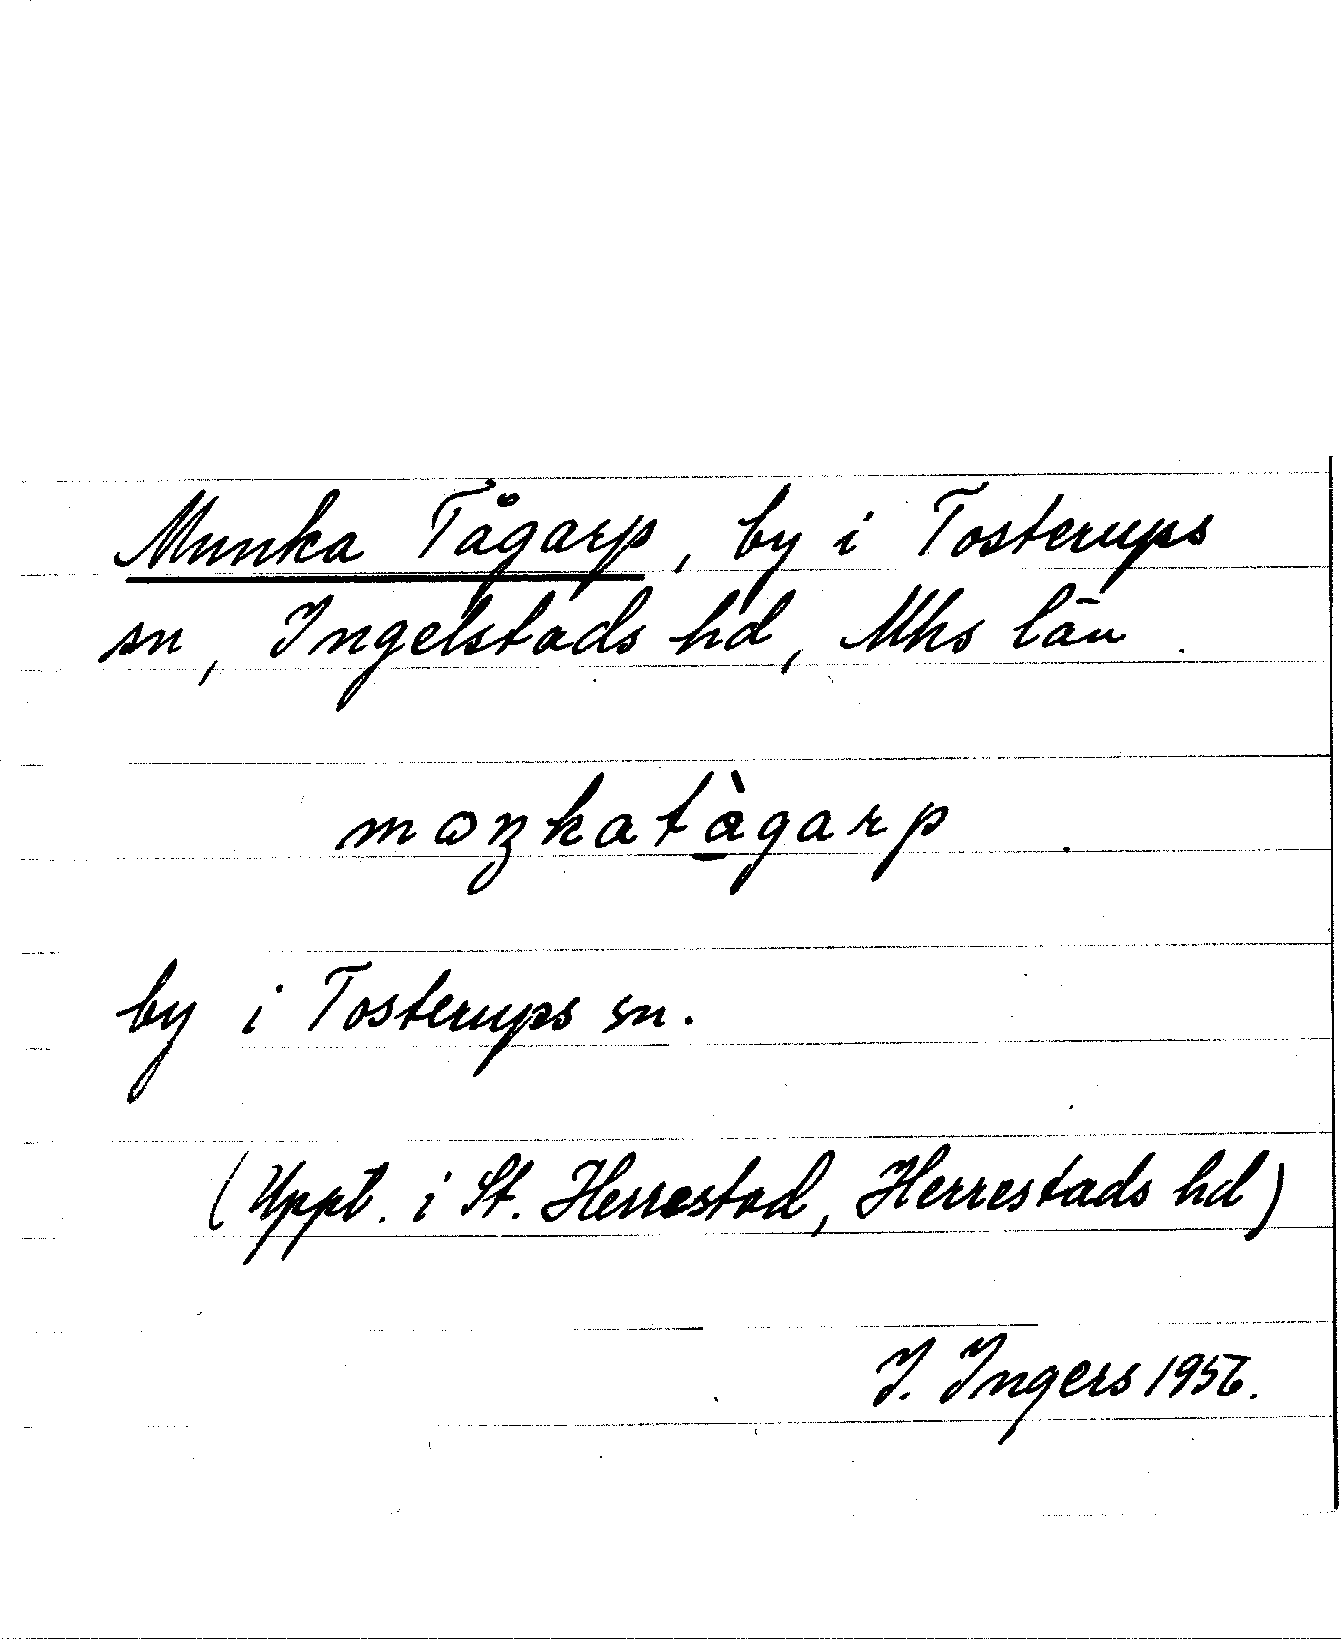 Munka Tågarp, by i Tosterups
sn, Ingelstads hd, Mhs län
by i Tosterups sn.
(Uppt. i St. Herrestad, Herrestads hd)
I. Ingers 1956.